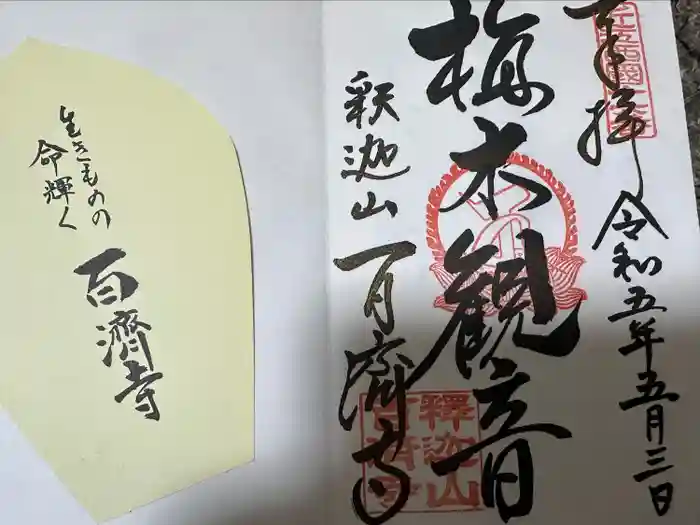 奉拝
令和五年五月三日
植木観音
釈迦山
百済寺
釋迦山
百済寺
生きものの
命輝く
百濟寺